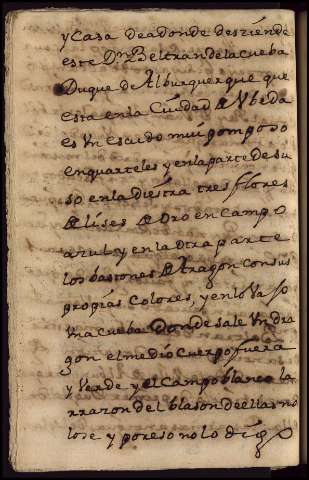 y Casa deadonde desziende
este Dn Beltran de la Cueba
Duque de Alburquerque que
esta en la Ciudad de Vbeda
es Vn escudo mui pomposo
en quarteles y en la parte de su
so en la diestra tres flores
de lises de Oro en campo
azul y en la otra parte
los bastones de Aragon con sus
propias colores, y en lo Vaso
Vna cueba donde sale Vn dra
gon el medio cuerpo fuera
y Verde y el Campo blanco la
rrazon del blason de ellas no
lo se y por eso no lo digo